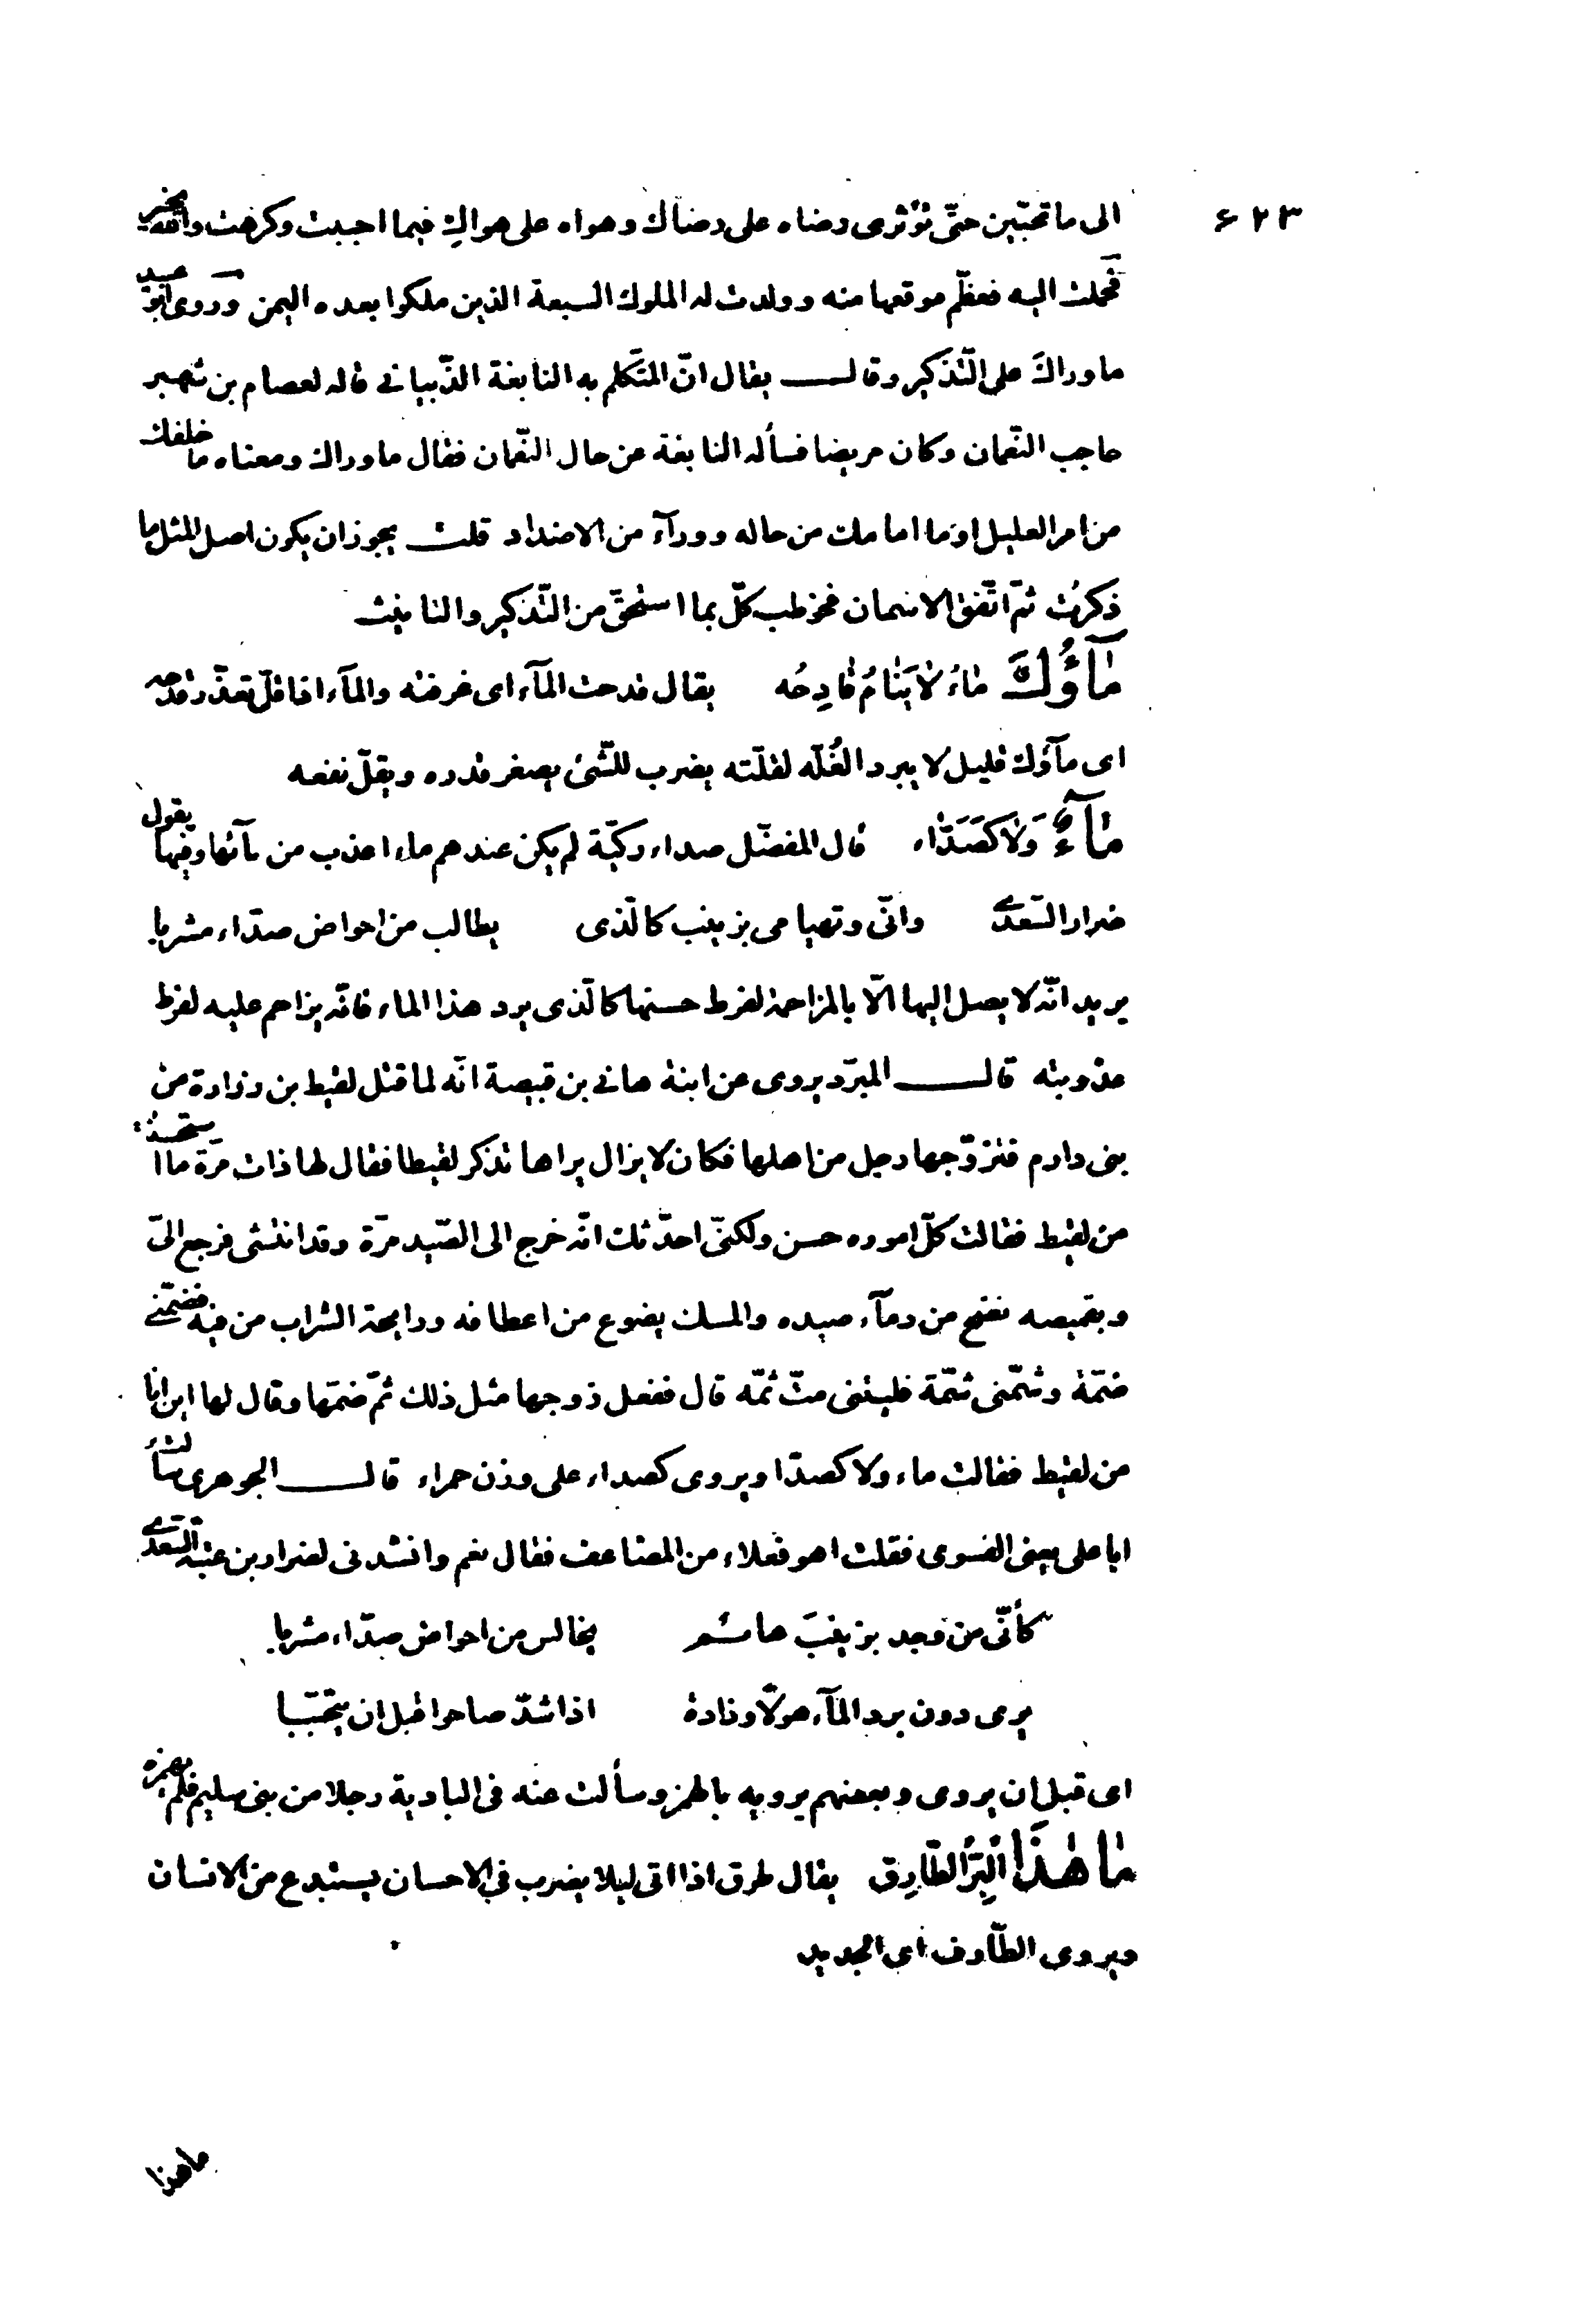 ۶۲۳
الى ما تحبّين حتّى تؤثرى رضاه على رضاك وهواه على هواكِ فيما احببت وكرهت والله يخير
فحملت اليه فعظّم موقعها منه وولدت له الملوك السبعة الذين ملكوا بعده اليمن وروى ابو عبيد
ما وراكَ على التّذكير وقال يقال انّ المتكلم به النابغة الذّبيانى قاله لعصام بن شهبر
حاجب النّعمان وكان مريضا فسأله النابغة عن حال النّعمان فقال ما وراك ومعناه ما خلفك
من امر العليل او ما امامك من حاله ووراآء من الاضداد قلت يجوز ان يكون اصل المثل ما
ذكرتُ ثمّ اتّفق الاسمان فخوطب كلّ بما استحقّ من التّذكير والتانيث
مَآؤُكَ مَاءُ لَا يَنَامُ قَادِحُه يقال قدحت المآء اى غرفته والمآء اذا قلّ تعذّر قدحه
اى مآؤك قليل لا يبرد الغُلّه لقلّته يضرب للشّئ يصغر قدره ويقلّ نفعه
مَآءٌ وَلَا كَصَدَّاء قال المفضّل صداء ركيّة لم يكن عندهم ماء اعذب من مآئها وفيها يقول
ضرار السّعدىّ وانّى وتهيامى بزينب كالّذى يطالب من احواض صدّاء مشربا
يريد انّه لا يصل اليها الّا بالمزاحمة لفرط حسنها كالّذى يرد هذا الماء فانّه يزاحم عليه لفرط
عذوبته قال المبرّد يروى عن ابنة هانى بن قبيصة انّه لما قتل لقيط بن زرارة من
بنى دارم فتزوّجها رجل من اهلها فكان لا يزال يراها تذكر لقيطا فقال لها ذات مرّة ما استحسنت
من لقيط فقالت كلّ اموره حسن ولكنّى احدّثك انّه خرج الى الصّيد مرّة وقد انتشى فرجع الىّ
وبقميصه نضح من دمآء صيده والمسك يضوع من اعطافه ورايحة الشراب من فيه فضمّنى
ضمّة وشمّنى شمّة فليتنى متّ ثمّه قال ففعل زوجها مثل ذلك ثمّ ضمّها وقال لها اين انا
من لقيط فقالت ماء ولا كصدّا ويروى كصداء على وزن حمراء قال الجوهرى سألت
ابا على يعنى الفسوى فقلت اهو فعلاء من المضاعف فقال نعم وانشدنى لضرار بن عتبة السّعدىّ
كأنّى من وجد بزينبَ هائم يخالس من احواض صدّاء مشربا
يرى دون برد المآء هولًا وذادة اذا شدّ صاحوا قبل ان يتحبّبا
اى قبل ان يروى وبعضهم يرويه بالهمز وسألت عنه فى البادية رجلا من بنى سليم فلم يهمزه
مَا هٰذَا البِرُّ الطَّارِق يقال طرق اذا اتى ليلا يضرب فى الاحسان يستبدع من الانسان
ويروى الطّارف اى الجديد
ما هذا